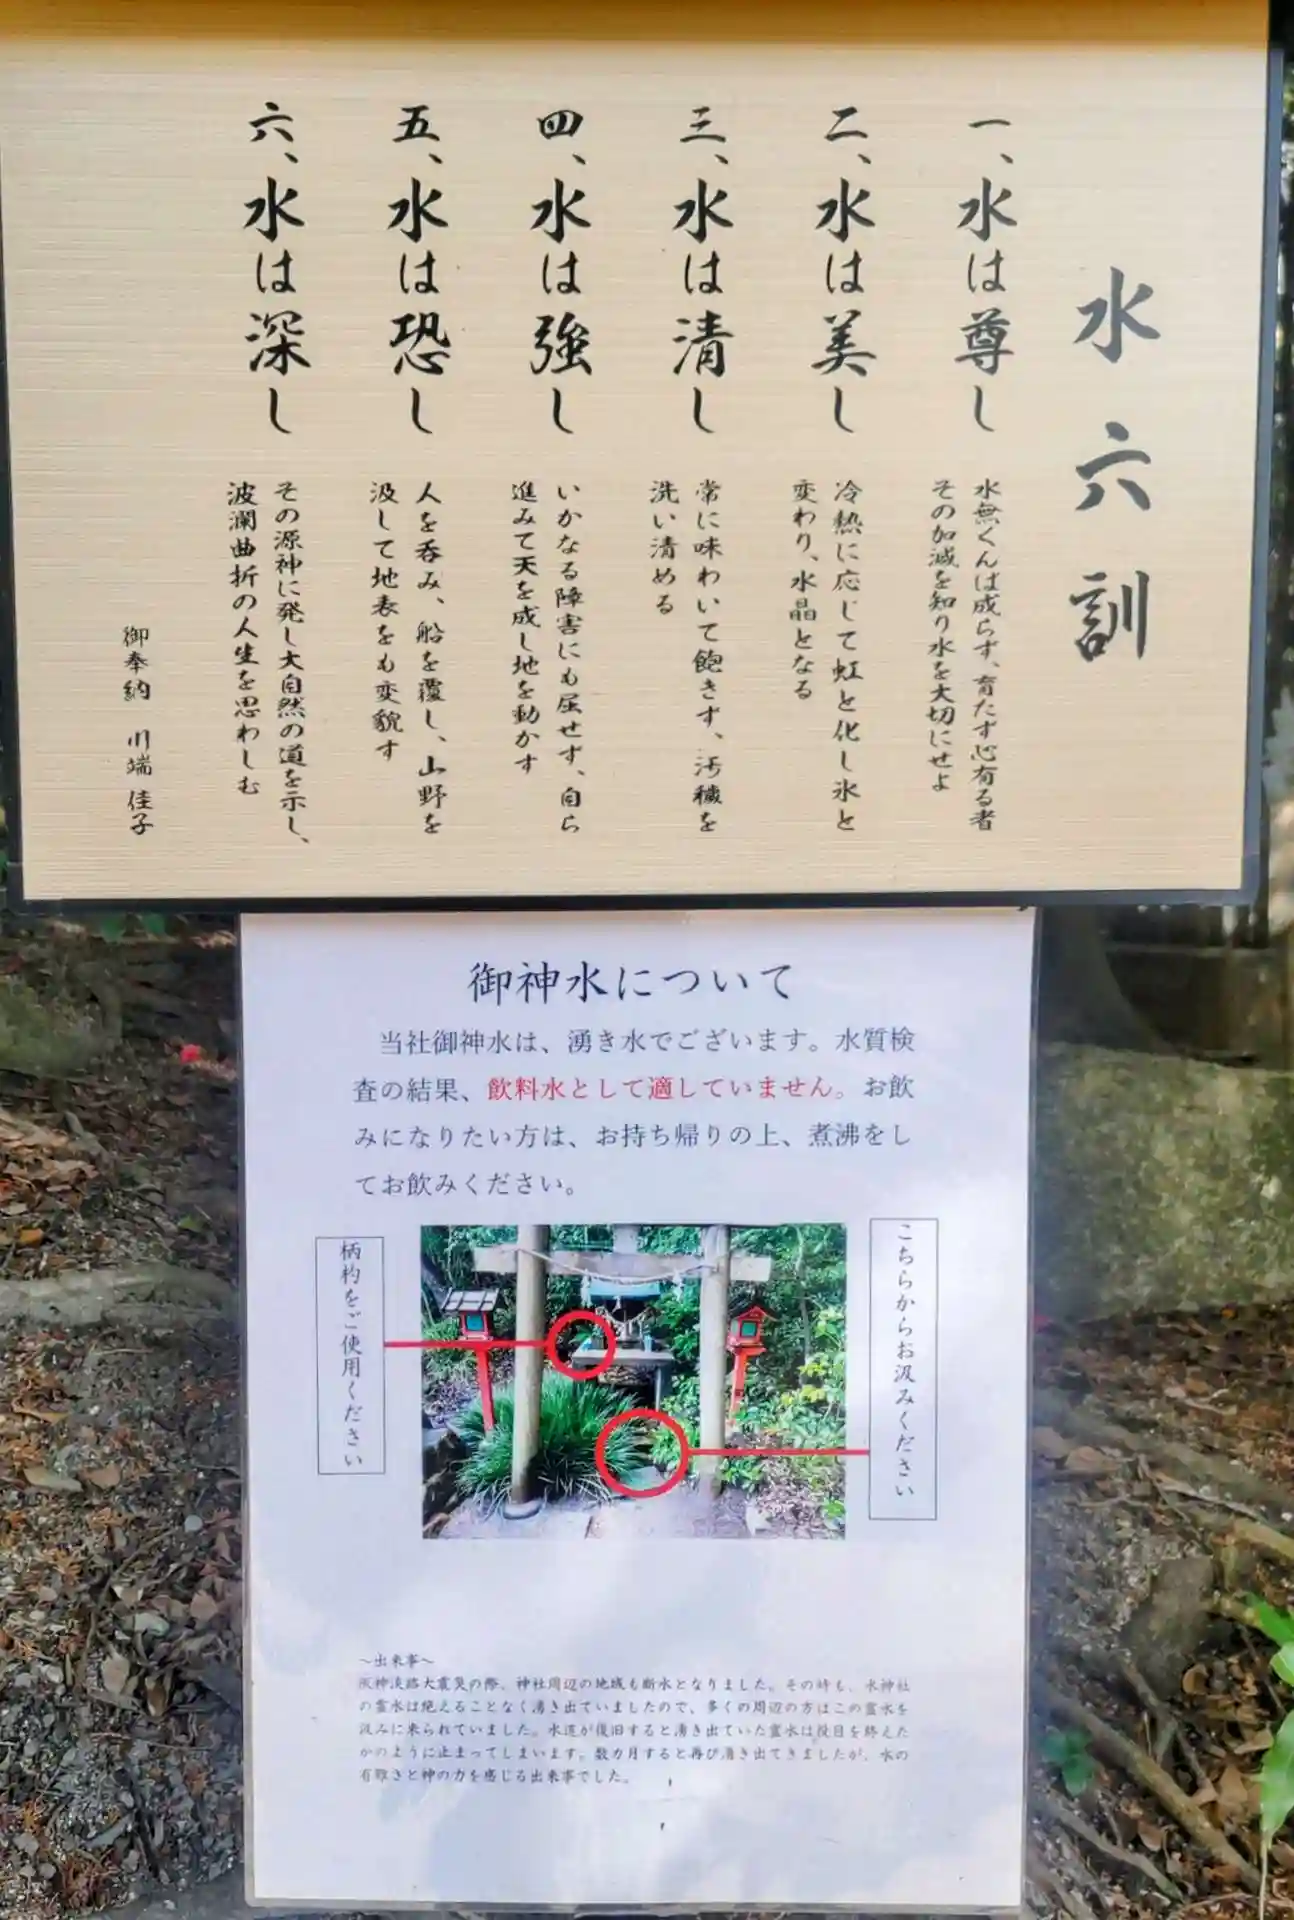 水六訓
一、水は尊し
水無くんば成らず、育たず心有る者
その加減を知り水を大切にせよ
二、水は美し
冷熱に応じて虹と化し氷と
変わり、水晶となる
三、水は清し
常に味わいて飽きず、汚穢を
洗い清める
四、水は強し
いかなる障害にも屈せず、自ら
進みて天を成し地を動かす
五、水は恐し
人を呑み、船を覆し、山野を
汲して地表をも変貌す
六、水は深し
その源神に発し大自然の道を示し、
波瀾曲折の人生を思わしむ
御奉納 川端佳子
御神水について
当社御神水は、湧き水でございます。水質検
査の結果、飲料水として適していません。お飲
みになりたい方は、お持ち帰りの上、煮沸をし
てお飲みください。
こちらからお汲みください
柄杓をご使用ください
～出来事～
阪神淡路大震災の際、神社周辺の地域も断水となりました。その時も、水神社
の霊水は絶えることなく湧き出ていましたので、多くの周辺の方はこの霊水を
汲みに来られていました。水道が復旧すると湧き出ていた霊水は役目を終えた
かのように止まってしまいます。数カ月すると再び湧き出てきましたが、水の
有難さと神の力を感じる出来事でした。